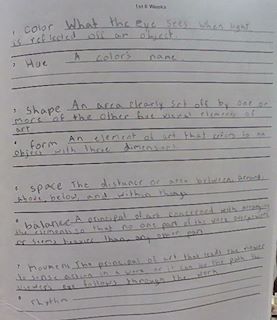 1st 6 Weeks
1 Color What the eye sees when light
is reflected off an object.
2 Hue A color's name
3 Shape An area clearly set off by one or
more of the other five visual elements of
art
4 form An element of art that refers to an
object with three dimensions
5 space The distance or area between, around,
above, below, and within things
6 balance A principal of art concerned with arranging
the elements so that no one part of the work overpowers
or seems heavier than any other part
7 Movement The principal of art that leads the viewer
to sense action in a work or it can be the path the
viewer's eye follows through the work
8 rhythm